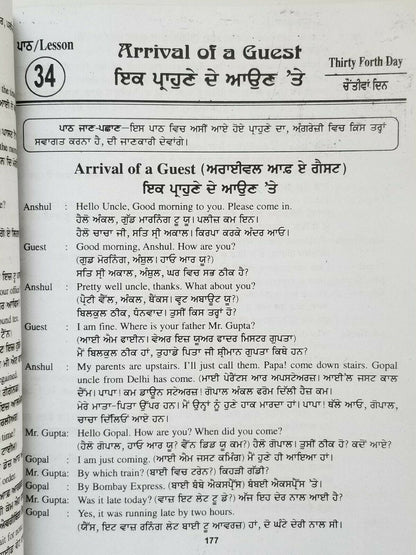 ਪਾਠ/Lesson
34
Arrival of a Guest
ਇਕ ਪ੍ਰਾਹੁਣੇ ਦੇ ਆਉਣ 'ਤੇ
Thirty Forth Day
ਚੌਂਤੀਵਾਂ ਦਿਨ
ਪਾਠ ਜਾਣ-ਪਛਾਣ—ਇਸ ਪਾਠ ਵਿਚ ਅਸੀਂ ਆਏ ਹੋਏ ਪ੍ਰਾਹੁਣੇ ਦਾ, ਅੰਗਰੇਜ਼ੀ ਵਿਚ ਕਿਸ ਤਰ੍ਹਾਂ
ਸਵਾਗਤ ਕਰਨਾ ਹੈ, ਦੀ ਜਾਣਕਾਰੀ ਦੇਵਾਂਗੇ।
Arrival of a Guest (ਅਰਾਈਵਲ ਆਫ਼ ਏ ਗੈਸਟ)
ਇਕ ਪ੍ਰਾਹੁਣੇ ਦੇ ਆਉਣ 'ਤੇ
Anshul : Hello Uncle, Good morning to you. Please come in.
ਹੈਲੋ ਅੰਕਲ, ਗੁੱਡ ਮਾਰਨਿੰਗ ਟੂ ਯੂ। ਪਲੀਜ਼ ਕਮ ਇਨ।
ਹੈਲੋ ਚਾਚਾ ਜੀ, ਸਤਿ ਸ੍ਰੀ ਅਕਾਲ। ਕਿਰਪਾ ਕਰਕੇ ਅੰਦਰ ਆਓ।
Guest : Good morning, Anshul. How are you?
(ਗੁਡ ਮੋਰਨਿੰਗ, ਅੰਸ਼ੁਲ, ਹਾਓ ਆਰ ਯੂ?)
ਸਤਿ ਸ੍ਰੀ ਅਕਾਲ, ਅੰਸ਼ੁਲ, ਘਰ ਵਿਚ ਸਭ ਠੀਕ ਹੈ?
Anshul : Pretty well uncle, thanks. What about you?
(ਪ੍ਰੈਟੀ ਵੈੱਲ, ਅੰਕਲ, ਥੈਂਕਸ। ਵੁਟ ਅਬਾਊਟ ਯੂ?)
ਬਿਲਕੁਲ ਠੀਕ, ਧੰਨਵਾਦ। ਤੁਸੀਂ ਕਿਸ ਤਰ੍ਹਾਂ ਹੈ?
Guest : I am fine. Where is your father Mr. Gupta?
(ਆਈ ਐਮ ਫਾਈਨ। ਵੇਅਰ ਇਜ਼ ਯੂਅਰ ਫਾਦਰ ਮਿਸਟਰ ਗੁਪਤਾ)
ਮੈਂ ਬਿਲਕੁਲ ਠੀਕ ਹਾਂ, ਤੁਹਾਡੇ ਪਿਤਾ ਜੀ ਸ਼੍ਰੀਮਾਨ ਗੁਪਤਾ ਕਿਥੇ ਹਨ?
Anshul : My parents are upstairs. I'll just call them. Papa! come down stairs. Gopal
uncle from Delhi has come. (ਮਾਈ ਪੇਰੈਂਟਸ ਆਰ ਅਪਸਟੇਅਰਜ਼। ਆਈ'ਲ ਜਸਟ ਕਾਲ
ਦੈੱਮ। ਪਾਪਾ! ਕਮ ਡਾਊਨ ਸਟੇਅਰਜ਼। ਗੋਪਾਲ ਅੰਕਲ ਫਰੋਮ ਦਿੱਲੀ ਹੈਜ਼ ਕਮ।
ਮੇਰੇ ਮਾਤਾ-ਪਿਤਾ ਉੱਪਰ ਹਨ। ਮੈਂ ਉਨ੍ਹਾਂ ਨੂੰ ਹੁਣੇ ਹਾਕ ਮਾਰਦਾ ਹਾਂ। ਪਾਪਾ! ਥੱਲੇ ਆਓ, ਗੋਪਾਲ,
ਚਾਚਾ ਦਿੱਲਿਓਂ ਆਏ ਹਨ।
Mr. Gupta: Hello Gopal. How are you? When did you come?
(ਹੈਲੋ ਗੋਪਾਲ, ਹਾਓ ਆਰ ਯੂ? ਵੈੱਨ ਡਿਡ ਯੂ ਕਮ?) ਹੈਲੋ ਗੋਪਾਲ। ਤੁਸੀਂ ਠੀਕ ਹੈ? ਕਦੋਂ ਆਏ?
Gopal : I am just coming. (ਆਈ ਐਮ ਜਸਟ ਕਮਿੰਗ) ਮੈਂ ਹੁਣੇ ਹੀ ਆਇਆ ਹਾਂ।
Mr. Gupta: By which train? (ਬਾਈ ਵਿਚ ਟਰੇਨ?) ਕਿਹੜੀ ਗੱਡੀ?
Gopal : By Bombay Express. (ਬਾਈ ਬੰਬੇ ਐਕਸਪ੍ਰੈੱਸ) ਬੰਬਈ ਐਕਸਪ੍ਰੈਸ 'ਤੇ।
Mr. Gupta: Was it late today? (ਵਾਜ਼ ਇਟ ਲੇਟ ਟੂ ਡੇ?) ਅੱਜ ਇਹ ਦੇਰ ਨਾਲ ਆਈ ਹੈ?
Gopal : Yes, it was running late by two hours.
(ਯੈੱਸ, ਇਟ ਵਾਜ਼ ਰਨਿੰਗ ਲੇਟ ਬਾਈ ਟੂ ਆਵਰਜ਼) ਹਾਂ, ਦੋ ਘੰਟੇ ਦੇਰੀ ਨਾਲ ਸੀ।
177